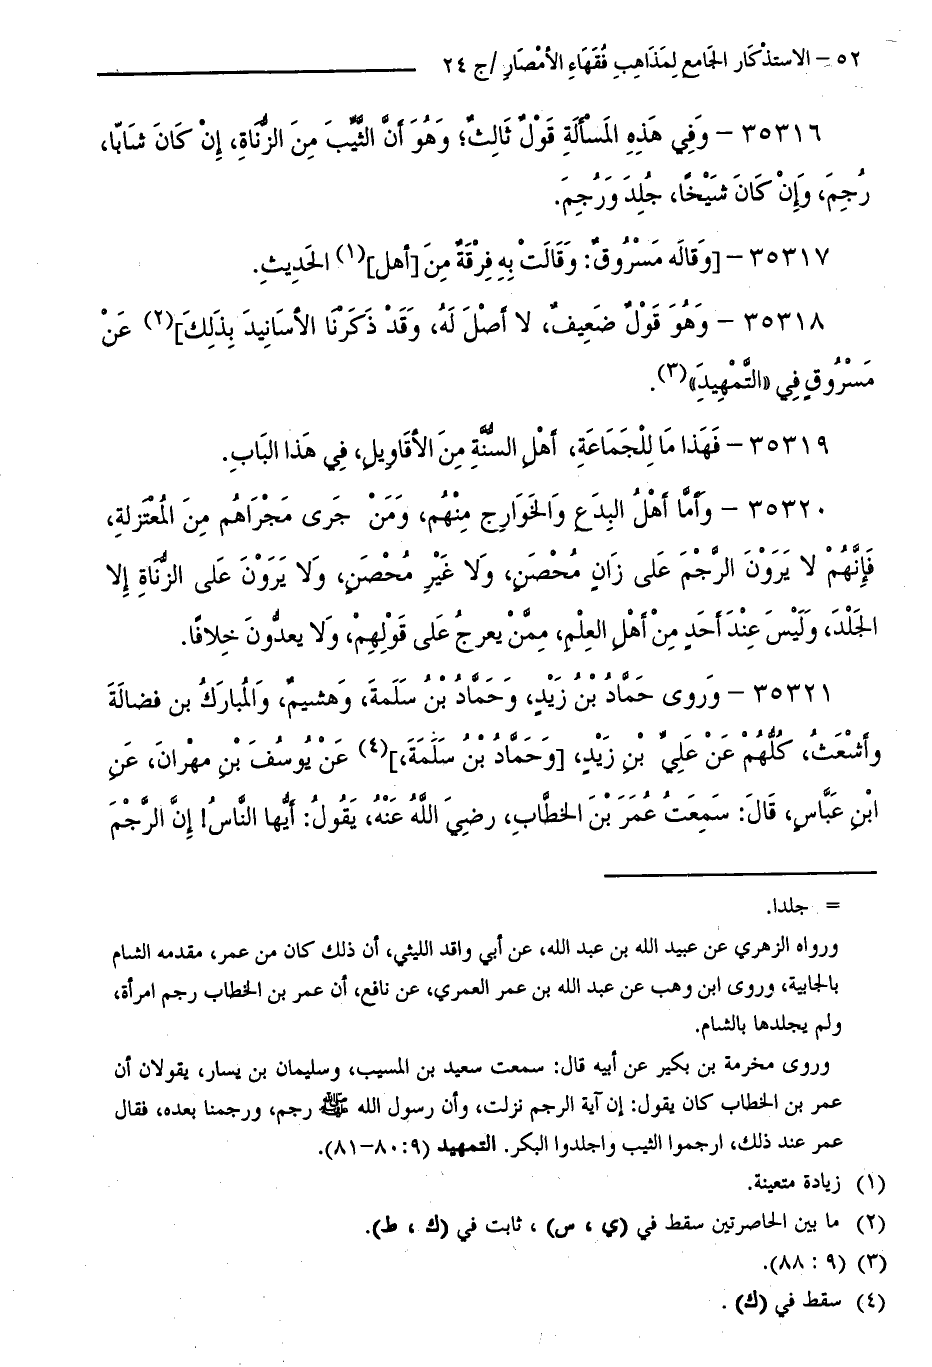 ٥٢ – الاستذْكار الجَامع لِمَذَاهِبِ فُقَهَاءِ الأمْصَارِ / ج ٢٤
٣٥٣١٦ – وَفِي هَذِهِ المَسْأَلَةِ قَوْلٌ ثَالِثٌ؛ وَهُوَ أَنَّ الثَّيِّبَ مِنَ الزُّنَاةِ، إِنْ كَانَ شَابّا،
رُجِمَ، وَإِنْ كَانَ شَيْخًا، جُلِدَ وَرُجِمَ.
٣٥٣١٧ – [وَقَالَه مَسْرُوقٌ: وَقَالَتْ بِهِ فِرْقَةٌ مِنَ [أهل](١) الحَدِيثِ.
٣٥٣١٨ – وَهُوَ قَوْلٌ ضَعِيفٌ، لا أصْلَ لَهُ، وَقَدْ ذَكَرْنَا الأسَانِيدَ بِذَلِكَ](٢) عَنْ
مَسْرُوقٍ فِي «التَّمْهِيدِ»(٣).
٣٥٣١٩ – فَهَذا مَا لِلْجَمَاعَةِ، أهْلِ السنَّةِ مِنَ الأقَاوِيلِ، فِي هَذا البَابِ.
٣٥٣٢٠ – وَأَمَّا أهْلُ البِدَعِ وَالخَوَارِجِ مِنْهُم، وَمَنْ جَرى مَجْرَاهُم مِنَ المُعْتَزلةِ،
فَإِنَّهُمْ لا يَرَوْنَ الرَّجْمَ عَلى زَانٍ مُحْصَنٍ، وَلا غَيْرِ مُحْصَنٍ، وَلا يَرَوْنَ عَلى الزُّنَاةِ إِلا
الجَلْدَ، وَلَيْسَ عِنْدَ أحَدٍ مِنْ أهْلِ العِلْمِ، مِمَّنْ يعرجُ عَلى قَوْلِهِمْ، وَلا يعدُّونَ خِلافًا.
٣٥٣٢١ – وَروى حَمَّادُ بْنُ زَيْدٍ، وَحَمَّادُ بْنُ سَلَمةَ، وَهشيمٌ، وَالمُبارَكُ بن فضالَةَ
وأشْعَثُ، كُلُّهُمْ عَنْ عَلِيِّ بْنِ زَيْدٍ، [وَحَمَّادُ بْنُ سَلَمَةَ،](٤) عَنْ يُوسُفَ بْنِ مهْرانَ، عَنِ
ابْنِ عَبَّاسٍ، قَالَ: سَمِعَتُ عُمَرَ بْنَ الخطَّابِ، رضِيَ اللَّهُ عَنْهُ، يَقُولُ: أيُّها النَّاسُ! إنَّ الرَّجْمَ
= جلدا.
ورواه الزهري عن عبيد الله بن عبد الله، عن أبي واقد الليثي، أن ذلك كان من عمر، مقدمه الشام
بالجابية، وروى ابن وهب عن عبد الله بن عمر العمري، عن نافع، أن عمر بن الخطاب رجم امرأة،
ولم يجلدها بالشام.
وروى مخرمة بن بكير عن أبيه قال: سمعت سعيد بن المسيب، وسليمان بن يسار، يقولان أن
عمر بن الخطاب كان يقول: إن آية الرجم نزلت، وأن رسول الله ﷺ رجم، ورجمنا بعده، فقال
عمر عند ذلك، ارجموا الثيب واجلدوا البكر. التمهيد (٩:٨٠–٨١).
(١) زيادة متعينة.
(٢) ما بين الحاصرتين سقط في (ي ، س) ، ثابت في (ك ، ط).
(٣) (٩ : ٨٨).
(٤) سقط في (ك) .